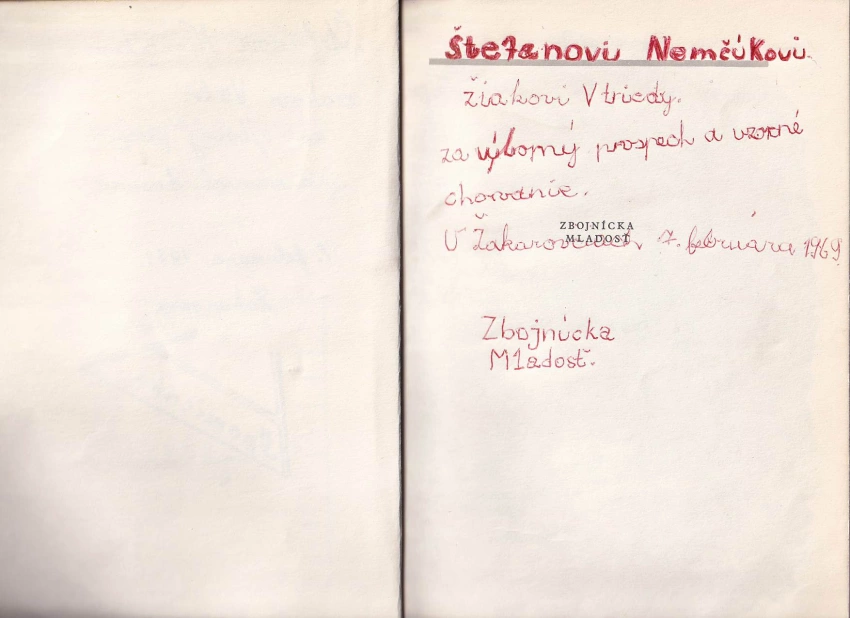 Štefanovi Nemčíkovi.
žiakovi V triedy.
za výborný prospech a vzorné
chovanie.
ZBOJNÍCKA
MLADOSŤ
V Žakarovciach, 7. februára 1969
Zbojnícka
Mladosť.